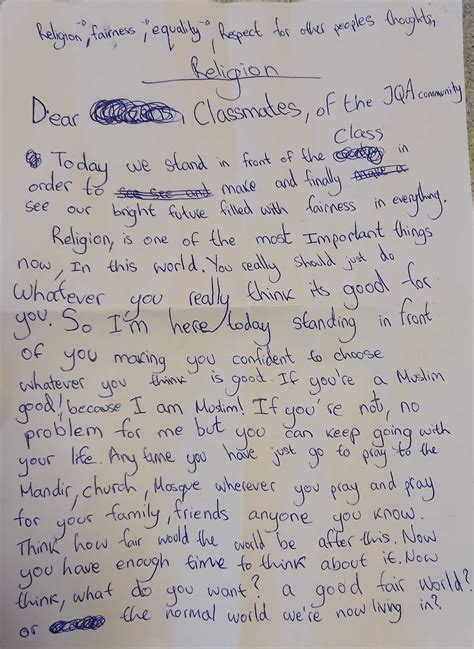 Religion, fairness, equality, Respect for other peoples thoughts,
Religion
Dear Classmates, of the JQA community
Class
Today we stand in front of the in
order to make and finally
see our bright future filled with fairness in everything.
Religion, is one of the most Important things
now, In this world. You really should just do
whatever you really think its good for
you. So I'm here today standing in front
of you making you confident to choose
whatever you think is good. If you're a Muslim
good! because I am Muslim! If you're not, no
problem for me but you can keep going with
your life. Any time you have just go to pray to the
Mandir, church, Mosque wherever you pray and pray
for your family, friends anyone you know.
Think how fair would the would be after this. Now
you have enough time to think about it. Now
think, what do you want? a good fair world?
or the normal world we're now living in?